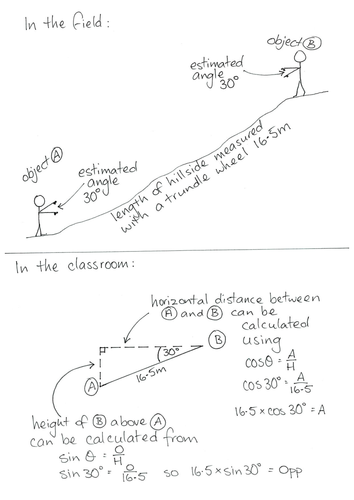 In the field:
object Ⓑ
estimated
angle
30°
object Ⓐ
estimated
angle
30°
length of hillside measured
with a trundle wheel 16.5m
In the classroom:
horizontal distance between
Ⓐ and Ⓑ can be
calculated
using
cosθ = A/H
cos 30° = A/16.5
16.5 × cos 30° = A
Ⓑ
30°
16.5m
Ⓐ
height of Ⓑ above Ⓐ
can be calculated from
sin θ = O/H
sin 30° = O/16.5 so 16.5 × sin 30° = Opp